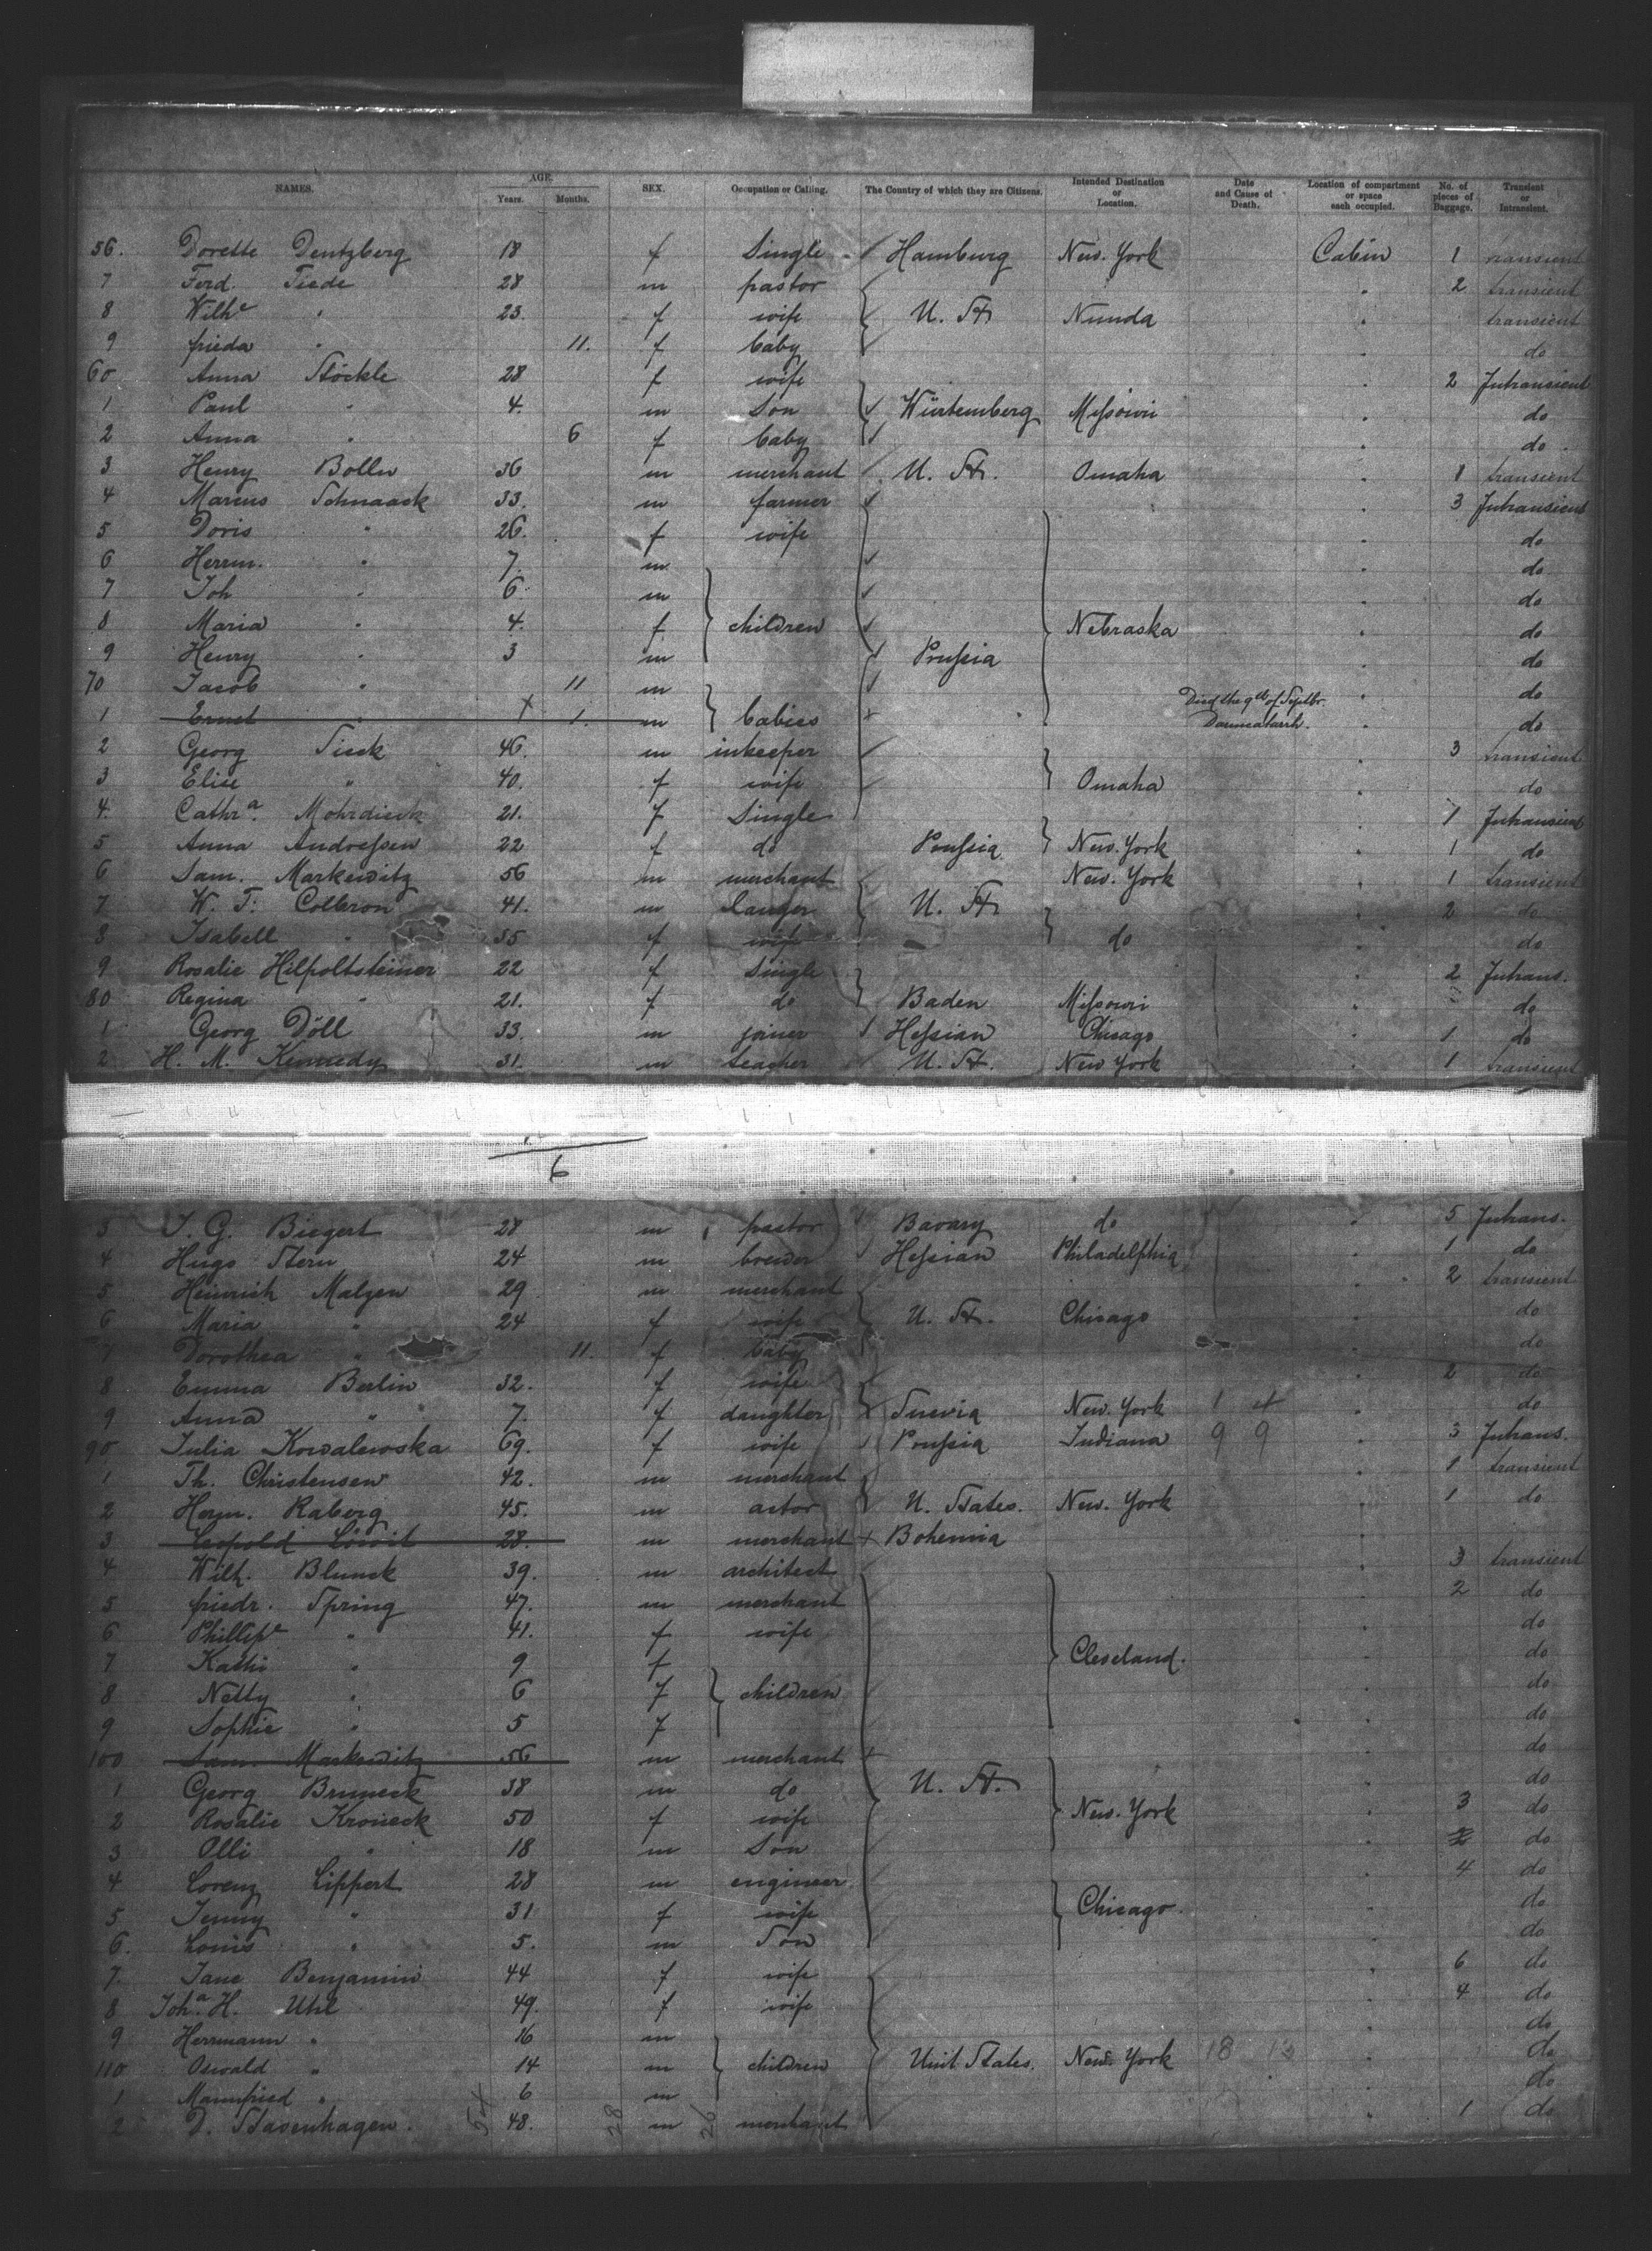 NAMES. AGE. SEX. Occupation or Calling. The Country of which they are Citizens. Intended Destination or Location. Date and Cause of Death. Location of compartment or space each occupied. No. of pieces of Baggage. Transient or Intransient.
Years. Months.
56. Dorette Dentzberg 18 f Single Hamburg New. York Cabin 1 transient
7 Ferd. Tiede 28 m pastor 2 transient
8 Wilhe " 23. f wife U. St Nunda transient
9 frieda " 11. f baby do
60 Anna Stöckle 28 f wife 2 Intransient
1 Paul " 4. m Son Würtemberg Missouri do
2 Anna " 6 f baby do
3 Henry Bolln 36 m merchant U. St. Omaha 1 transient
4 Marcus Schnaack 33. m farmer 3 Intransient
5 Doris " 26. f wife do
6 Herrm. " 7. m do
7 Joh " 6. m do
8 Maria " 4. f children Nebraska do
9 Henry " 3 m Prussia do
70 Jacob " 11 m do
1 Ernst " 1. m babies Died the 9th of Septbr. do
2 Georg Tieck 46. m inkeeper 3 transient
3 Elise " 40. f wife Omaha do
4. Cathra. Mohrdieck 21. f Single 1 Intransient
5 Anna Andressen 22 f do Prussia New. York 1 do
6 Sam. Markewitz 56 m merchant New. York 1 transient
7 W. T. Colbron 41. m U. St 2 do
8 Isabell " 35 f wife do do
9 Rosalie Hilpoltsteiner 22 f Single 2 Intrans.
80 Regina " 21. f do Baden Missouri do
1 Georg Döll 33. m joiner Hessian Chicago 1 do
2 H. M. Kennedy 31. m teacher U. St. New York 1 transient
6
3 J. G. Biegert 28 m pastor Bavary do 5 Intrans.
4 Hugo Stern 24 m brewer Hessian Philadelphia 1 do
5 Heinrich Malzen 29 m merchant 2 transient
6 Maria " 24 f wife U. St. Chicago do
7 Dorothea " 11. f baby do
8 Emma Berlin 32. f wife 2 do
9 Anna " 7. f daughter Suevia New. York 1 do
90 Julia Kowalewska 69. f wife Prussia Indiana 9 9 3 Intrans.
1 Th. Christensen 42. m merchant 1 transient
2 Herm. Raberg 45. m actor U. States. New. York 1 do
3 Leopold Löwit 28. m merchant Bohemia
4 Wilh. Blunck 39. m architect 3 transient
5 friedr. Spring 47. m merchant 2 do
6 Phillipe " 41. f wife do
7 Kathi " 9 f Cleveland. do
8 Netty " 6 f children do
9 Sophie " 5 f do
100 Sam. Markewitz 56 m merchant do
1 Georg Bruneck 38 m do U. St. do
2 Rosalie Kroneck 50 f wife New. York 3 do
3 Olli " 18 m Son do
4 Lorenz Lippert 28 m engineer 4 do
5 Jenny " 31 f wife Chicago. do
6. Louis " 5. m Son do
7. Jane Benjamin 44 f wife 6 do
8 Joha. H. Uhl 49. f wife 4 do
9 Herrmann " 16 m do
110 Oswald " 14 m children Unit States. New. York 18 do
1 Mannfried " 6 m do
2 D. Stavenhagen. 48. m merchant 1 do
54 28 26